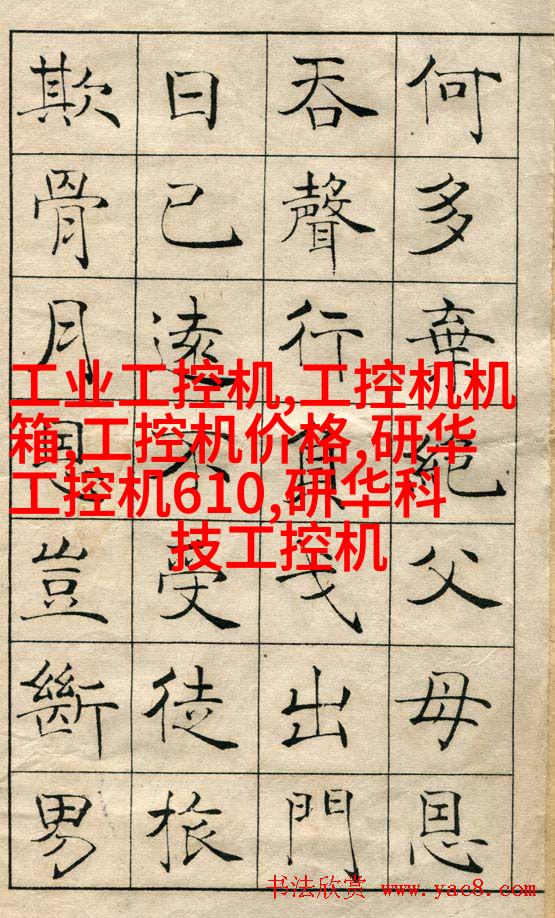 何多棄絕父母恩
吞聲行負戈出門
日已遠不受徒旅
欺骨月恩豈斷男
工业工控机,工控机机
箱,工控机价格,研华
工控机610,研华科
技工控机
书法欣赏 www.yac8.com